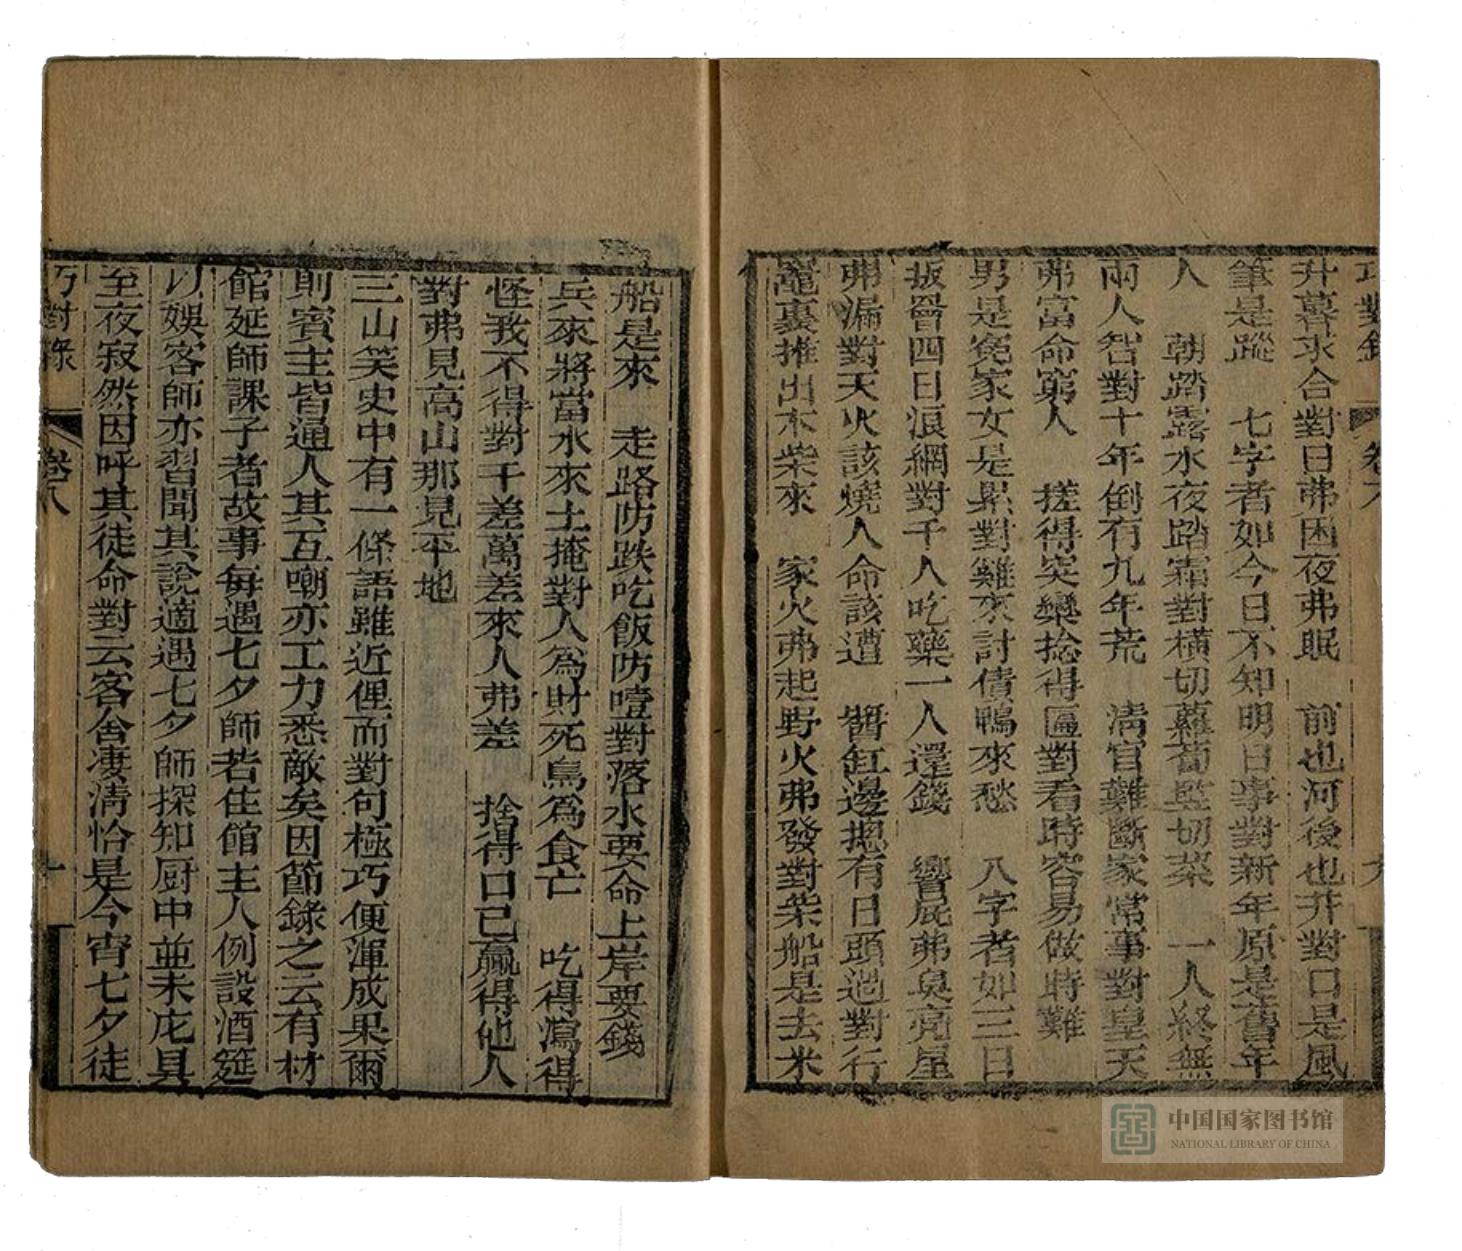 巧對錄 卷八 九
升暮求合對日弗困夜弗眠　前也河後也弄對口是風
筆是蹤　七字者如今日不知明日事對新年原是舊年
人　朝踏露水夜踏霜對橫切蘿蔔監切菜　一人終無
兩人智對十年倒有九年荒　清官難斷家常事對皇天
弗富命窮人　搓得突欒捻得匾對看時容易做時難
男是冤家女是累對雞來討債鴨來愁　八字者如三日
扳罾四日浪網對千人吃藥一人還錢　響屁弗臭亮屋
弗漏對天火該燒人命該遭　醬缸邊摠有日頭過對行
竈裏推出木柴來　家火弗起野火弗發對柴船是去米
船是來　走路防跌吃飯防噎對落水要命上岸要錢
兵來將當水來土掩對人為財死鳥為食亡　吃得瀉得
怪我不得對千差萬差來人弗差　捨得口已贏得他人
對弗見高山那見平地
三山笑史中有一條語雖近俚而對句極巧便渾成果爾
則賓主皆通人其互嘲亦工力悉敵矣因節錄之云有材
館延師課子者故事每遇七夕師若住館主人例設酒筵
以娛客師亦習聞其說適遇七夕師探知厨中並未庀具
至夜寂然因呼其徒命對云客舍淒清恰是今宵七夕徒
巧對錄 卷八 十
中国国家图书馆
NATIONAL LIBRARY OF CHINA